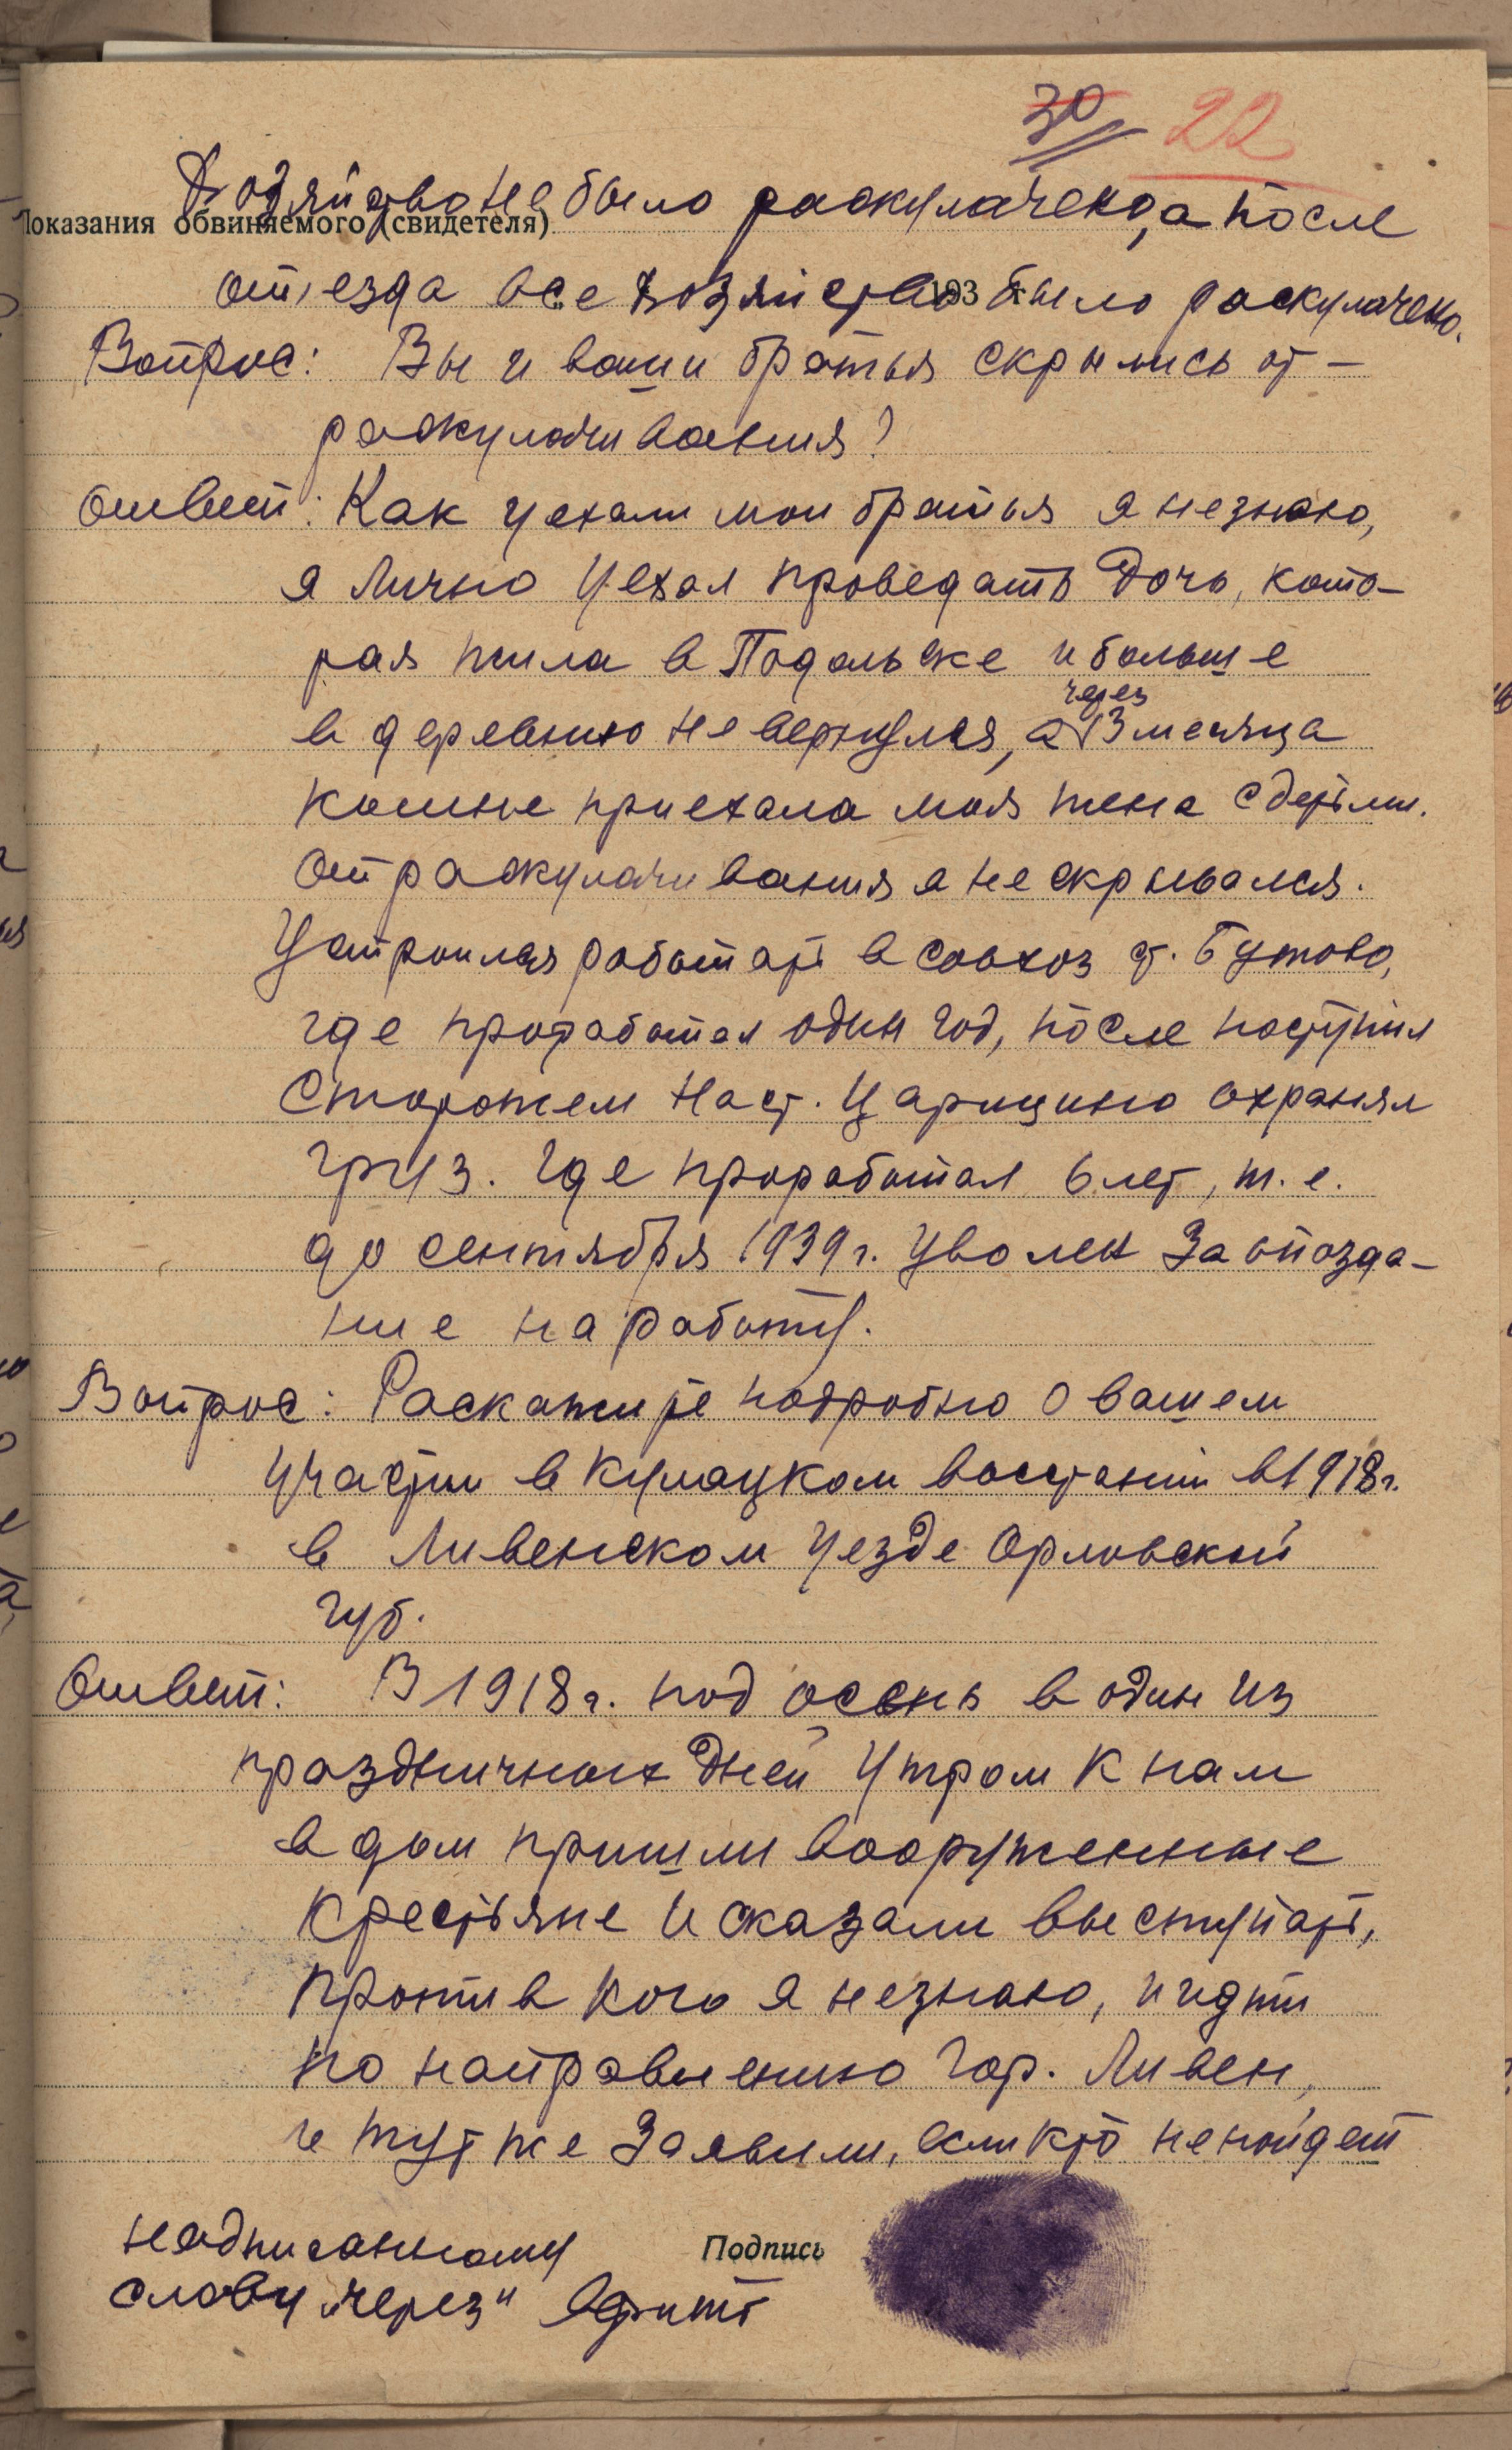 30 22
Хозяйство не было раскулачено, а после
Показания обвиняемого (свидетеля)
от,езда все хозяйство было раскулачено.
193 г.
Вопрос: Вы и ваши братья скрылись от –
раскулачивания?
Ответ: Как уехали мои братья я незнаю,
я Лично уехал проведать дочь, кото-
рая жила в Подольске и больше
в деревню не вернулся, а через 3 месяца
комне приехала моя жена с детьми.
От раскулачивания я не скрывался.
Устроился работать в совхоз ст. Бутово,
где проработал один год, после поступил
Сторожем на ст. Царицино охранял
груз. где проработал 6 лет, т.е.
до сентября 1939 г. уволен за опозда-
ние на работу.
Вопрос: Раскажите подробно о вашем
участии в кулацком востании в 1918 г.
в Ливенском уезде Орловской
губ.
Ответ: В 1918 г. под осень в один из
праздничных дней утром к нам
в дом пришли вооруженные
крестьяне и сказали выступать,
против кого я незнаю, и идти
по направлению гор. Ливен,
и тут же заявили, если кто не пойдет
надписанному
слову „через" верить
Подпись